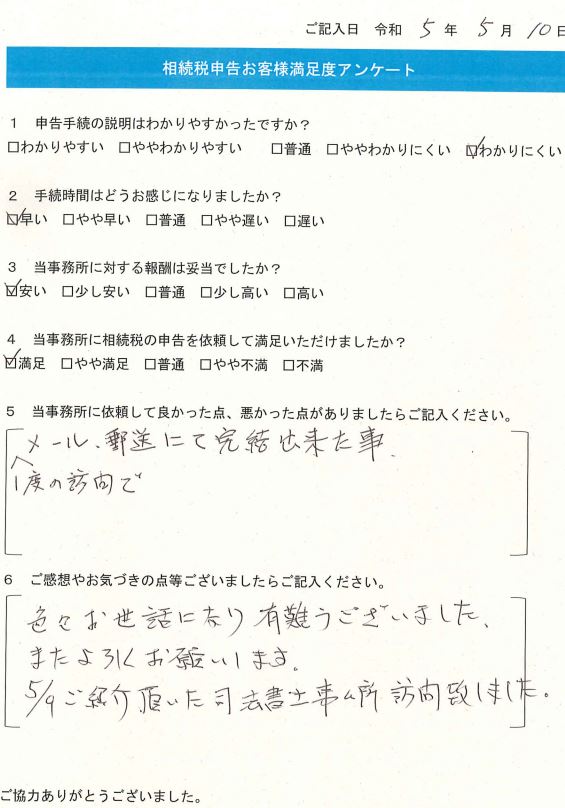 ご記入日 令和 5 年 5 月 10 日
相続税申告お客様満足度アンケート
1 申告手続の説明はわかりやすかったですか?
□わかりやすい □ややわかりやすい □普通 □ややわかりにくい ☑わかりにくい
2 手続時間はどうお感じになりましたか?
☑早い □やや早い □普通 □やや遅い □遅い
3 当事務所に対する報酬は妥当でしたか?
☑安い □少し安い □普通 □少し高い □高い
4 当事務所に相続税の申告を依頼して満足いただけましたか?
☑満足 □やや満足 □普通 □やや不満 □不満
5 当事務所に依頼して良かった点、悪かった点がありましたらご記入ください。
メール、郵送にて完結出来た事、
1度の訪問で
6 ご感想やお気づきの点等ございましたらご記入ください。
色々お世話になり有難うございました、
またよろしくお願いします。
5/9ご紹介頂いた司法書士事ム所訪問致しました。
ご協力ありがとうございました。